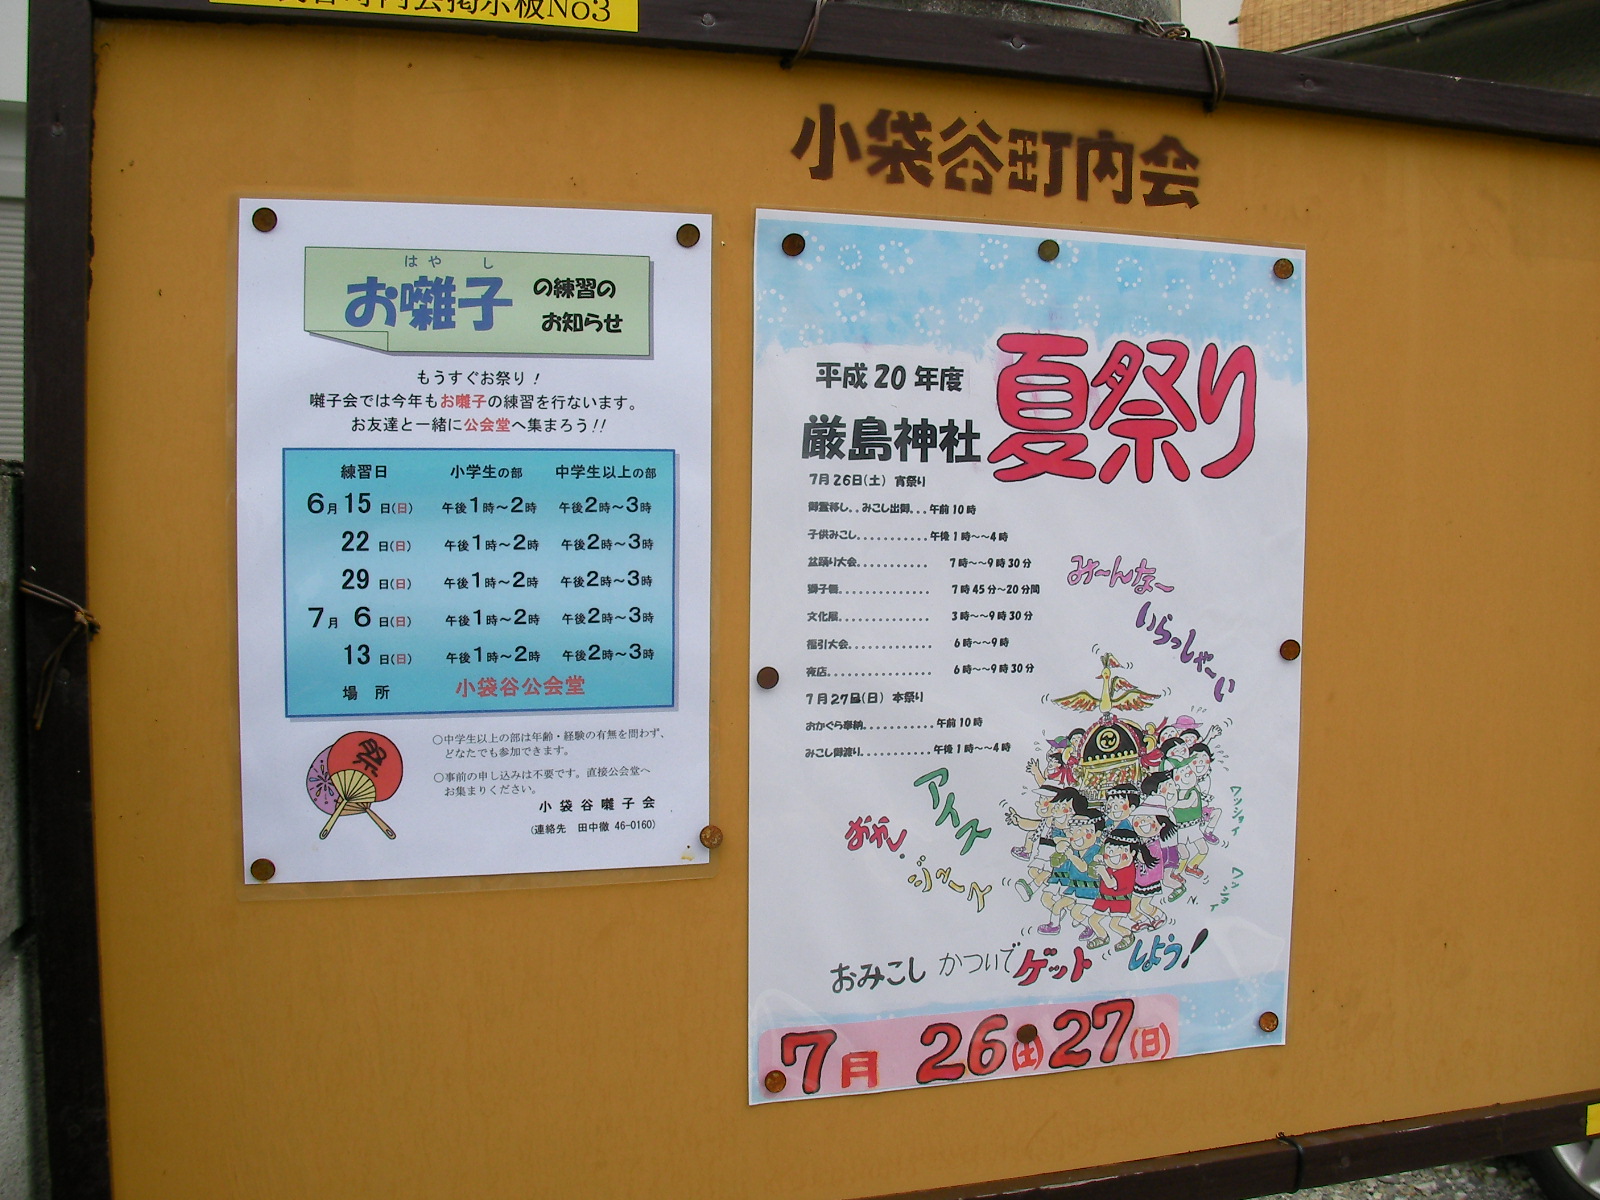 町内会掲示板No3
小袋谷町内会
はやし
お囃子の練習の
お知らせ
もうすぐお祭り！
囃子会では今年もお囃子の練習を行ないます。
お友達と一緒に公会堂へ集まろう!!
練習日 小学生の部 中学生以上の部
6月 15日(日) 午後1時～2時 午後2時～3時
22日(日) 午後1時～2時 午後2時～3時
29日(日) 午後1時～2時 午後2時～3時
7月 6日(日) 午後1時～2時 午後2時～3時
13日(日) 午後1時～2時 午後2時～3時
場所 小袋谷公会堂
祭
○中学生以上の部は年齢・経験の有無を問わず、
どなたでも参加できます。
○事前の申し込みは不要です。直接公会堂へ
お集まりください。
小袋谷囃子会
(連絡先 田中徹 46-0160)
平成20年度
厳島神社
夏祭り
7月26日(土) 宵祭り
御霊移し..みこし出御...午前10時
子供みこし...........午後1時～～4時
盆踊り大会........... 7時～～9時30分
獅子舞.............. 7時45分～20分間
文化展.............. 3時～～9時30分
福引大会............ 6時～～9時
夜店................ 6時～～9時30分
7月27日(日) 本祭り
おかぐら奉納...........午前10時
みこし御渡り...........午後1時～～4時
み～んな～
いらっしゃ～い
アイス
おかし・
ジュース
ワッショイ
ワッショイ
N.
おみこし かついで ゲット しよう！
7月 26(土)・27(日)